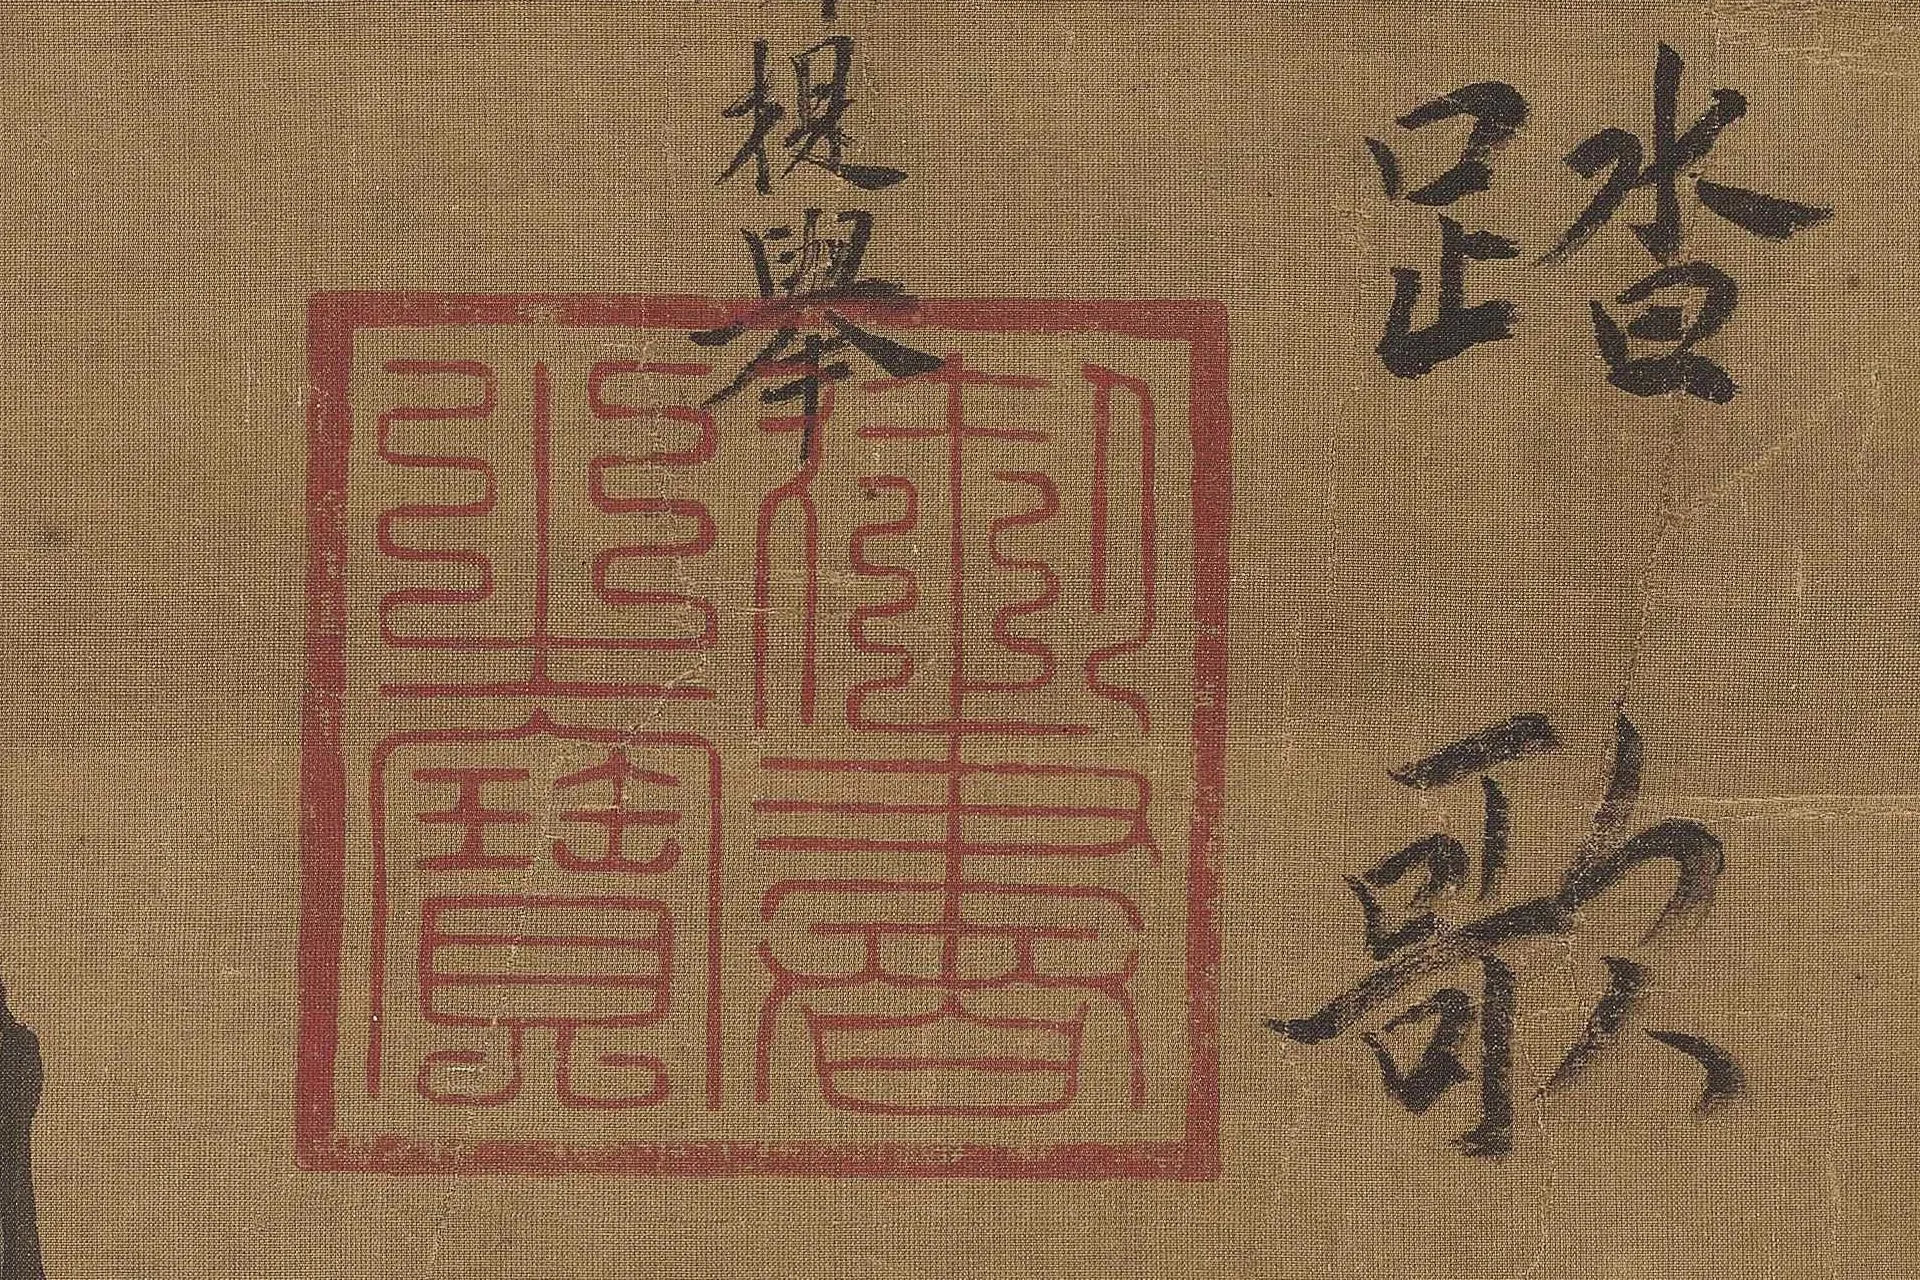 踏歌
提舉
御書
之寶